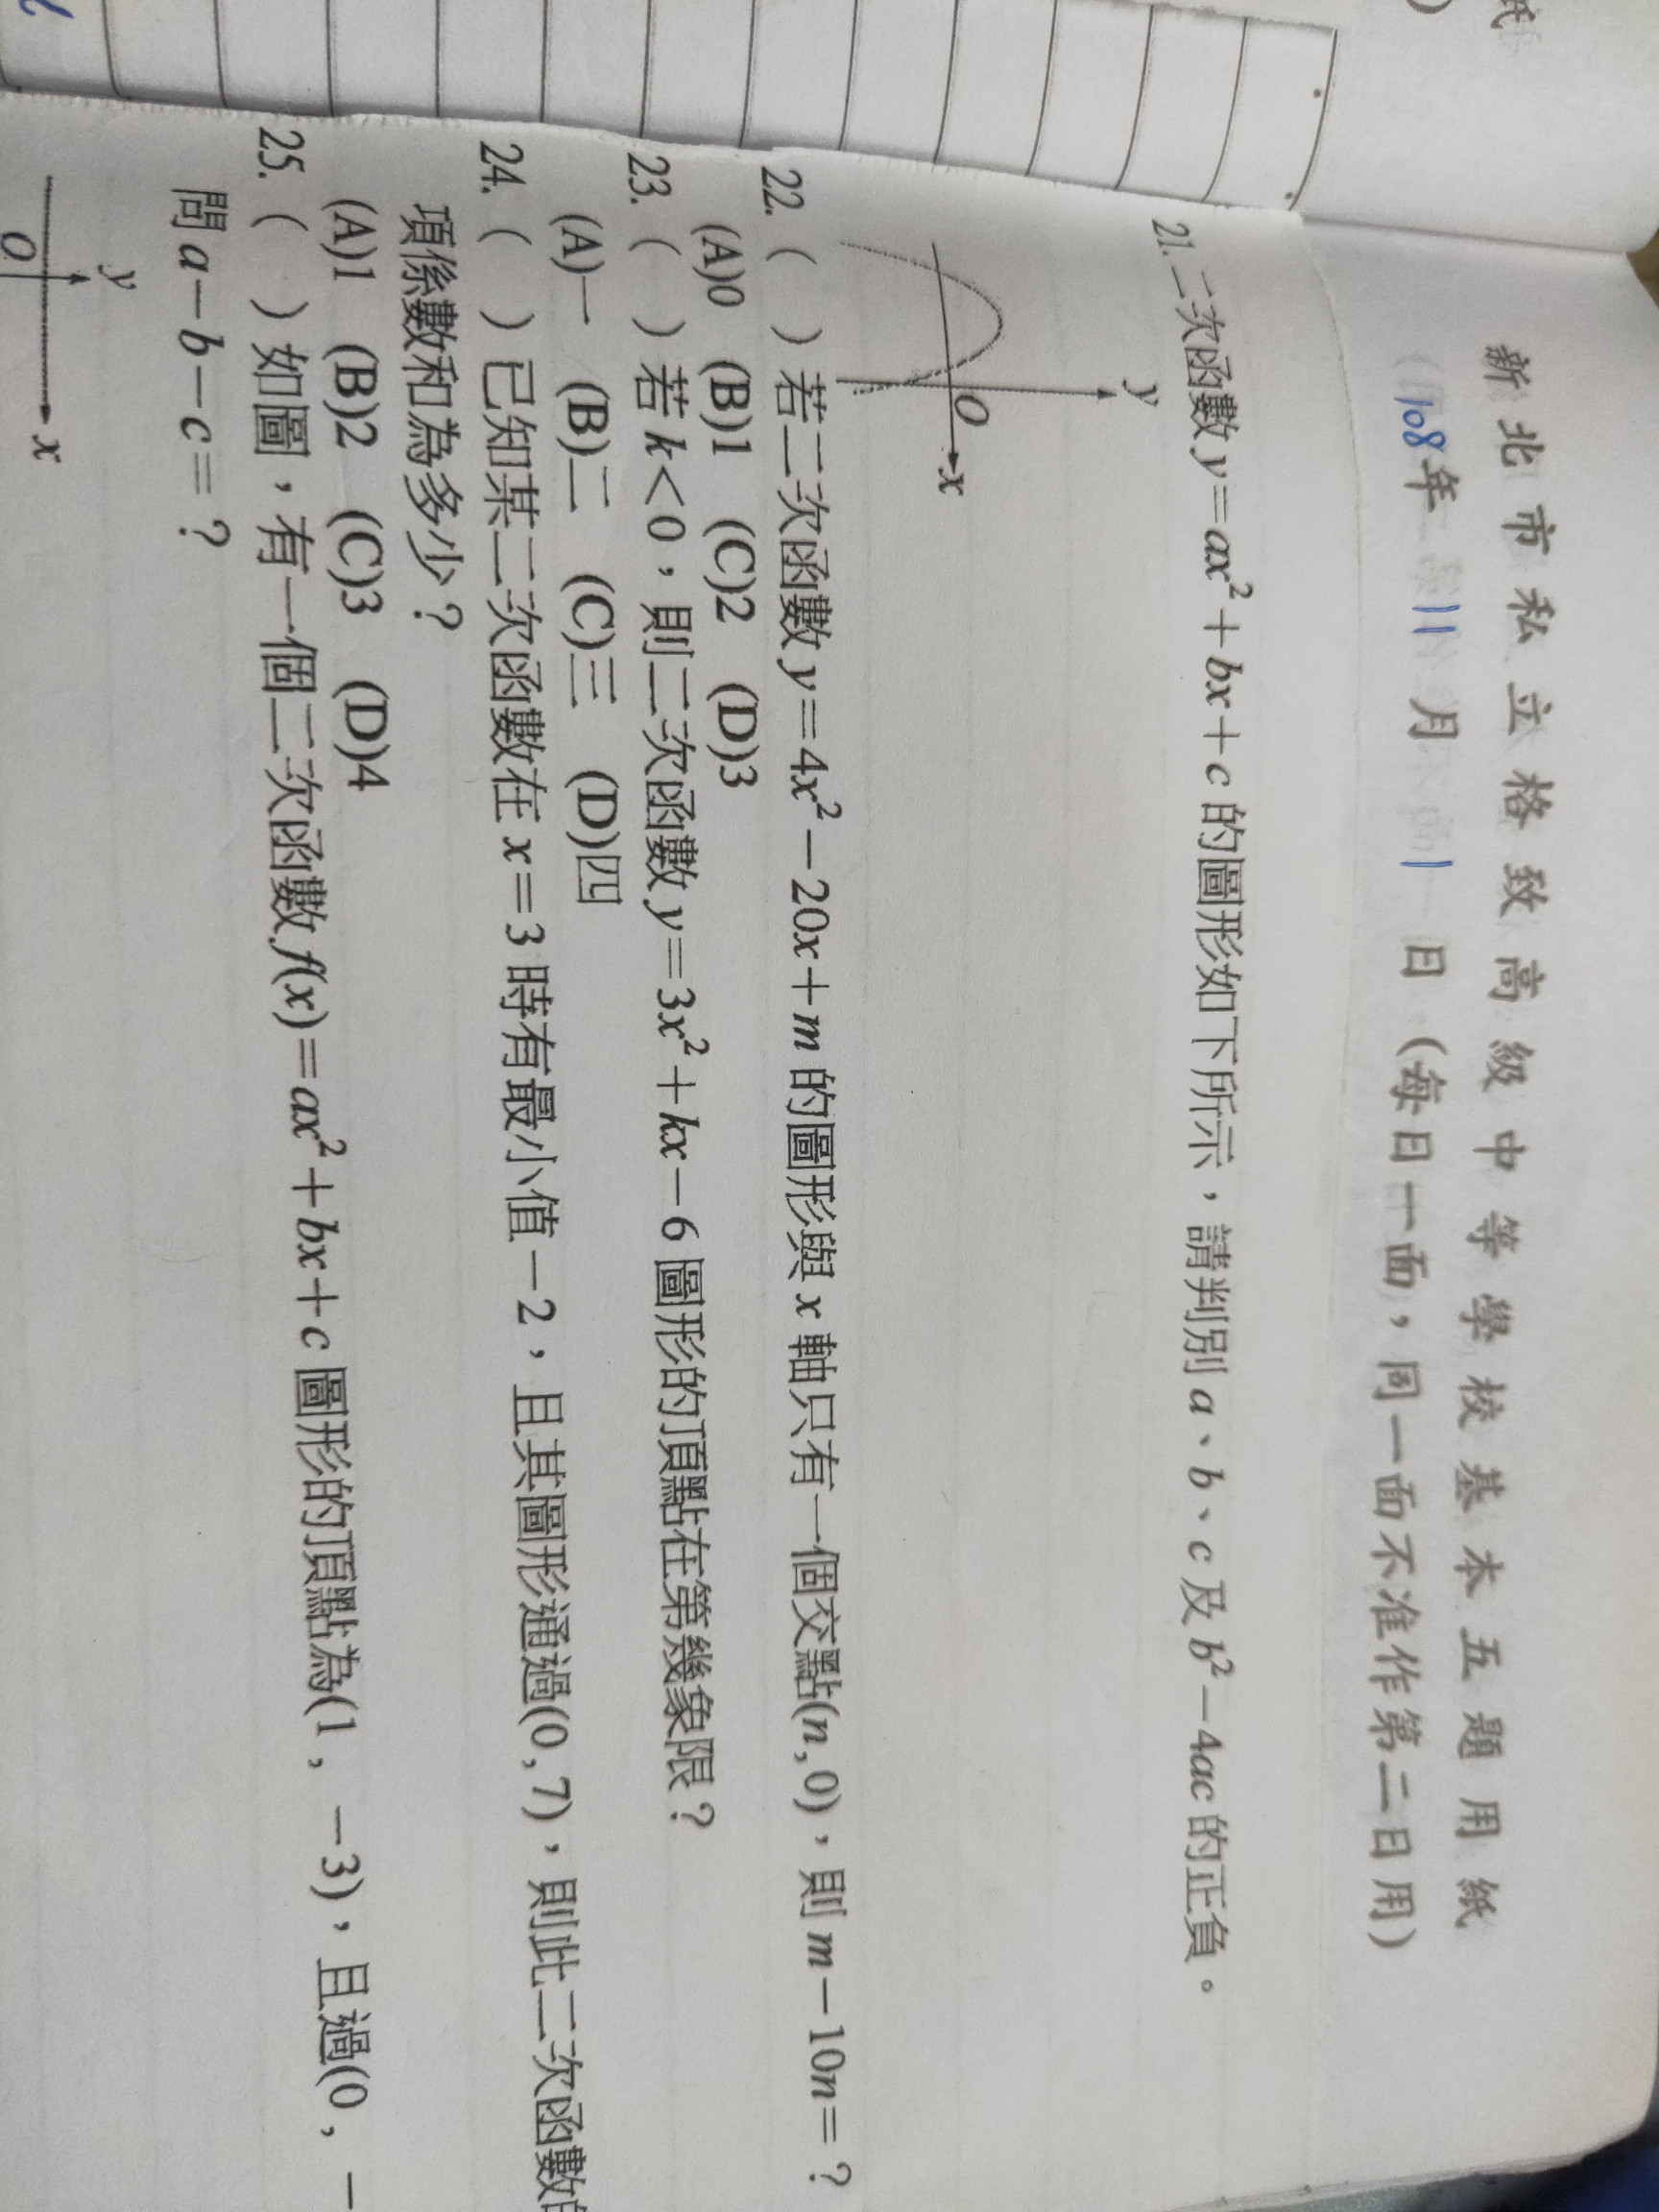 紙
)
新北市私立格致高級中等學校基本五題用紙
(108年 11 月 1 日(每日一面,同一面不准作第二日用)
21.二次函數 y=ax²+bx+c 的圖形如下所示,請判別 a、b、c 及 b²-4ac 的正負。
y
O
x
22.( )若二次函數 y=4x²-20x+m 的圖形與 x 軸只有一個交點(n,0),則 m-10n=?
(A)0 (B)1 (C)2 (D)3
23.( )若 k<0,則二次函數 y=3x²+kx-6 圖形的頂點在第幾象限?
(A)一 (B)二 (C)三 (D)四
24.( )已知某二次函數在 x=3 時有最小值-2,且其圖形通過(0,7),則此二次函數的
項係數和為多少?
(A)1 (B)2 (C)3 (D)4
25.( )如圖,有一個二次函數 f(x)=ax²+bx+c 圖形的頂點為(1,-3),且過(0,-
問 a-b-c=?
y
O
x